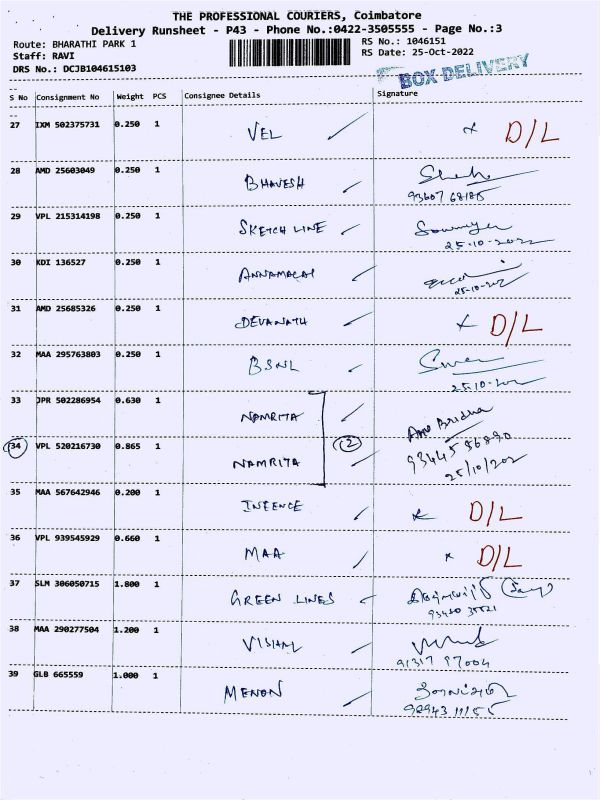 THE PROFESSIONAL COURIERS, Coimbatore
Delivery Runsheet - P43 - Phone No.:0422-3505555 - Page No.:3
Route: BHARATHI PARK 1 RS No.: 1046151
Staff: RAVI RS Date: 25-Oct-2022
DRS No.: DCJB104615103
BOX DELIVERY
S No Consignment No Weight PCS Consignee Details Signature
27 IXM 502375731 0.250 1 VEL D/L
28 AMD 25603049 0.250 1 BHAVESH
93607 68185
29 VPL 215314198 0.250 1 SKETCH LINE Sowmya
25-10-2022
30 KDI 136527 0.250 1 ANNAMALAI
25-10-202
31 AMD 25685326 0.250 1 DEVANATH D/L
32 MAA 295763803 0.250 1 BSNL
25-10-202
33 JPR 502286954 0.630 1 NAMRITA
34 VPL 520216730 0.865 1 NAMRITA 2
9344556890
25/10/202
35 MAA 567642946 0.200 1 D/L
36 VPL 939545929 0.660 1 MAA D/L
37 SLM 306050715 1.800 1 GREEN LINES
38 MAA 290277504 1.200 1 VISHAL
91317 97004
39 GLB 665559 1.000 1 MENON
98943 11155